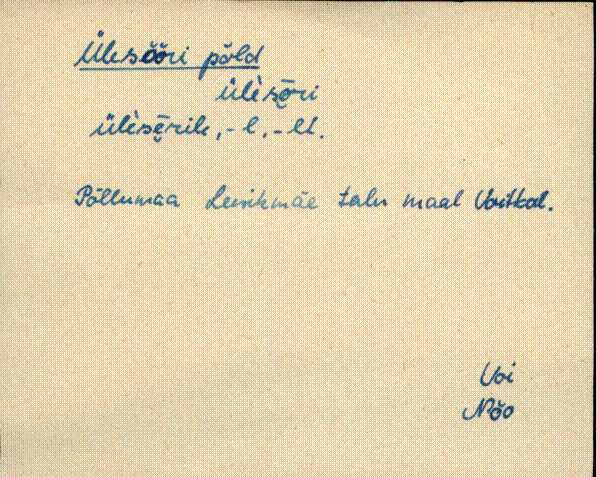 Ülesööri põld
ülèsēri
ülèsērile, -l, -lt.
Põllumaa Leesikmäe talu maal Voitkal.
Voi
Nõo